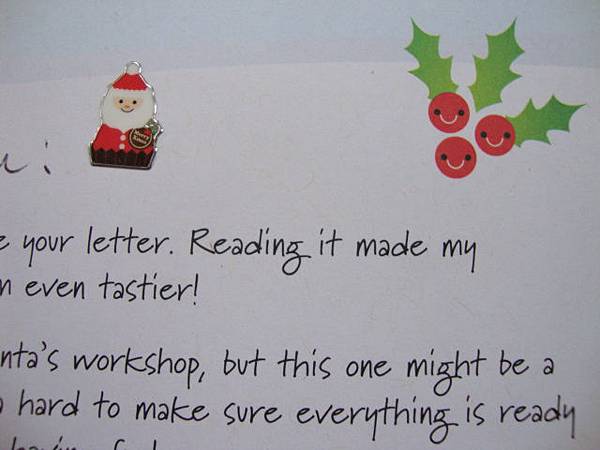 your letter. Reading it made my
even tastier!
nta's workshop, but this one might be a
hard to make sure everything is ready